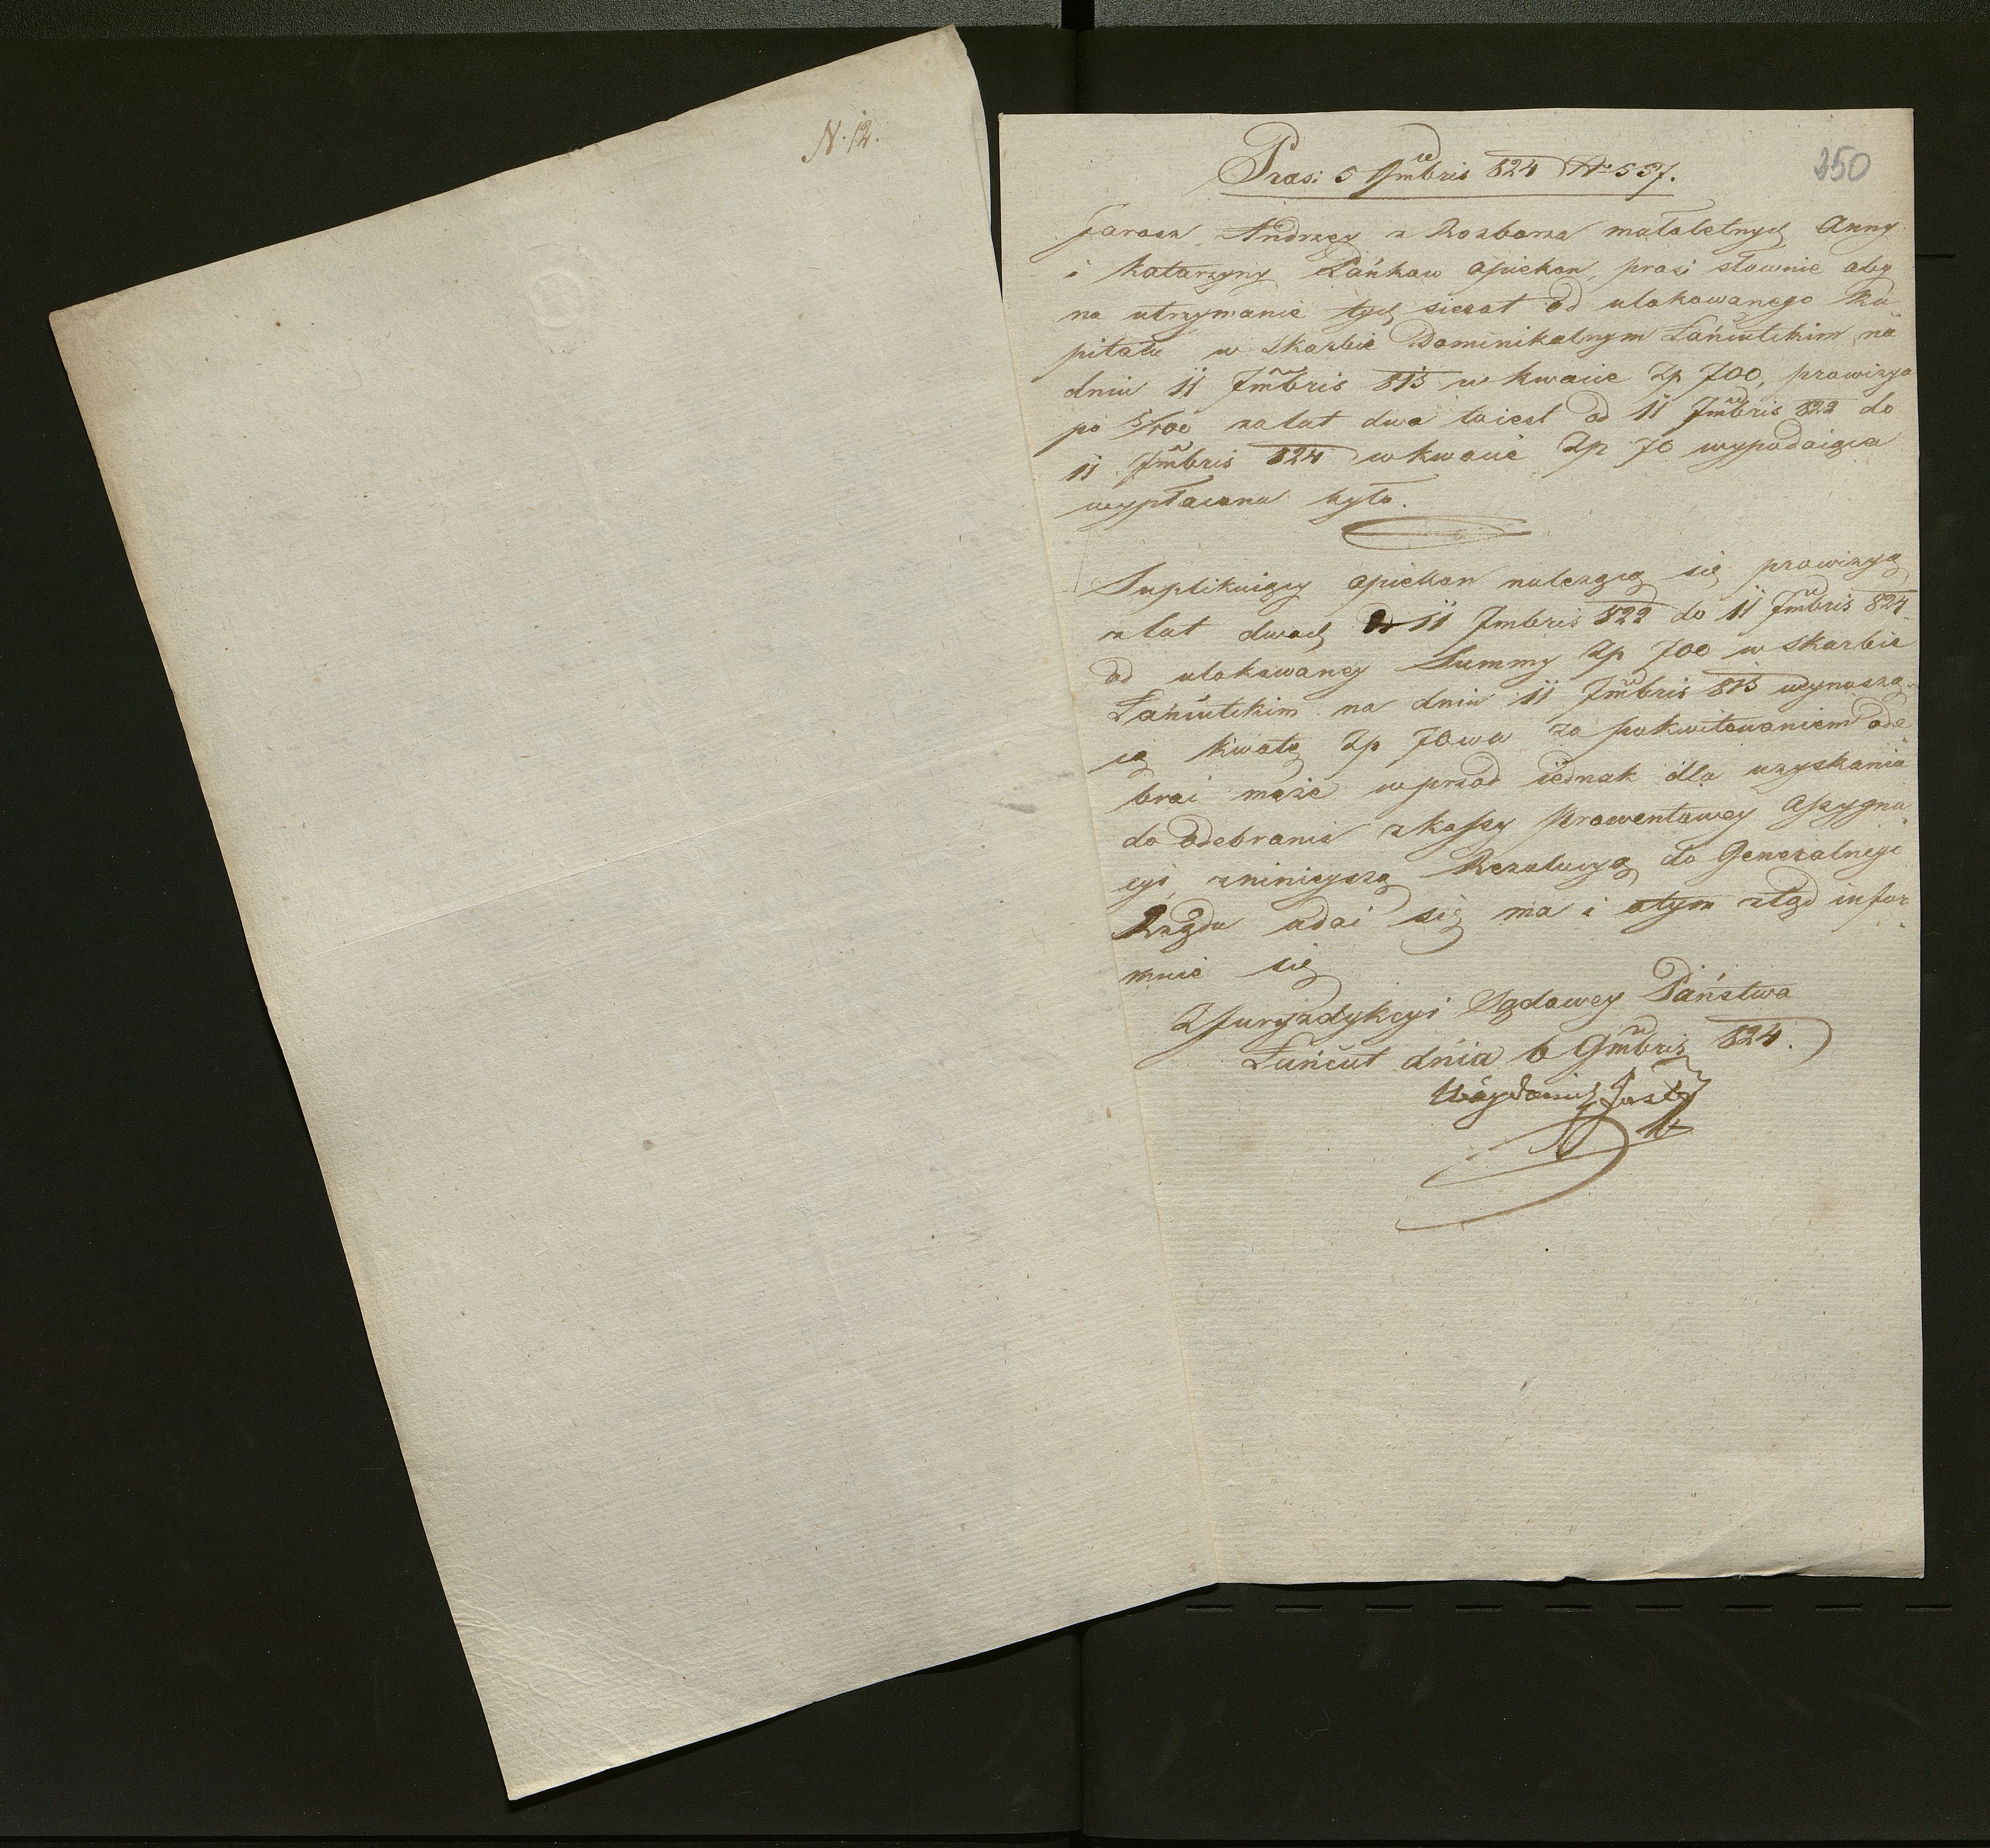 N. 12.
250
Præs: 5 9mbris 824 No 557.
Jarosz Andrzey z Rozborza małoletnych Anny
i Katarzyny Pańkow opiekon, prosi słownie aby
na utrzymanie tych sierot od ulokowanego Ka
pitału w Skarbie Dominikalnym Łańcutskim na
dniu 11 7mbris 815 w kwocie Zp 700, prowizya
po 5/100 za lat dwa to iest od 11 7mbris 822 do
11 7mbris 824 w kwocie Zp 70 wypadaiąca
wypłacona była.
Suplikuiący opiekon należącą się prowizyą
z lat dwoch od 11 7mbris 822 do 11 7mbris 824
od ulokowaney Summy Zp 700 w Skarbie
Łańcutskim na dniu 11 7mbris 815 wynoszą
cą kwotę Zp 70wu za pokwitowaniem ode
brać może w przod iednak dla uzyskania
do odebrania z kassy prowentowey assygna
cyi z ninieyszą Rezolucyą do Generalnego
Rządu udać się ma i o tym ztąd infor
muie się
Z Juryzdykcyi Sądowey Państwa
Łańcut dnia 6 9mbris 824.